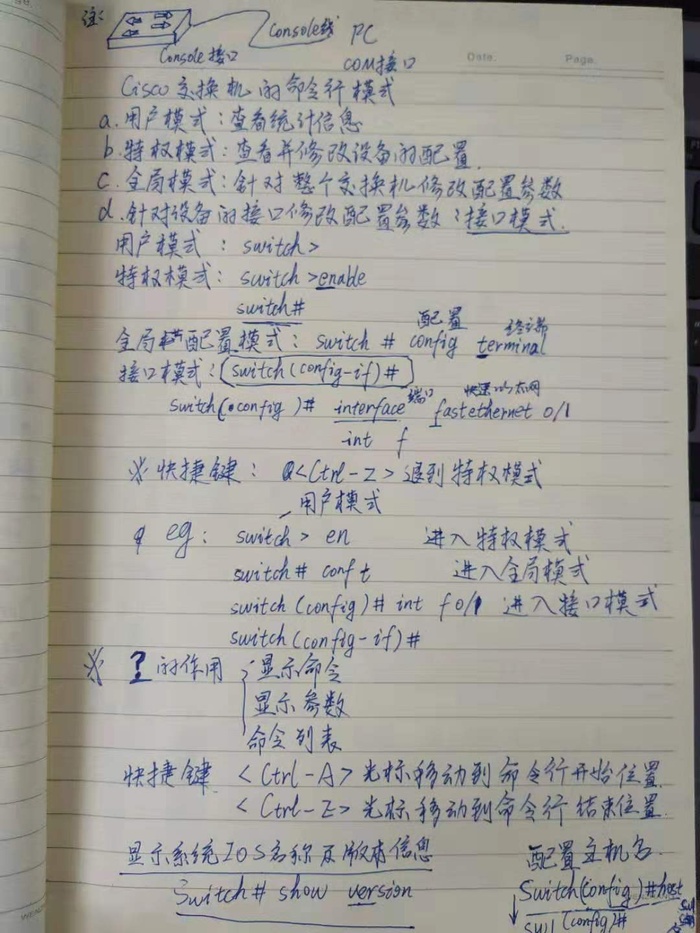 注:
Console线 PC
Console接口 COM接口
Date. Page.
Cisco 交换机的命令行模式
a.用户模式:查看统计信息
b.特权模式:查看并修改设备的配置.
c.全局模式:针对整个交换机修改配置参数
d.针对设备的接口修改配置参数:接口模式.
用户模式: switch>
特权模式: switch>enable
switch#
配置 终端
全局配置模式: switch # config terminal
接口模式: switch(config-if)#
端口 快速以太网
switch(config)# interface fastethernet 0/1
int f
※ 快捷键: <Ctrl-z>退到特权模式
用户模式
eg: switch> en 进入特权模式
switch# conf t 进入全局模式
switch (config)# int f 0/1 进入接口模式
switch(config-if)#
※ ?的作用 显示命令
显示参数
命令列表
快捷键 <Ctrl-A> 光标移动到命令行开始位置.
<Ctrl-Z> 光标移动到命令行结束位置.
显示系统IOS名称及版本信息 配置主机名.
Switch# show version Switch(config)#host